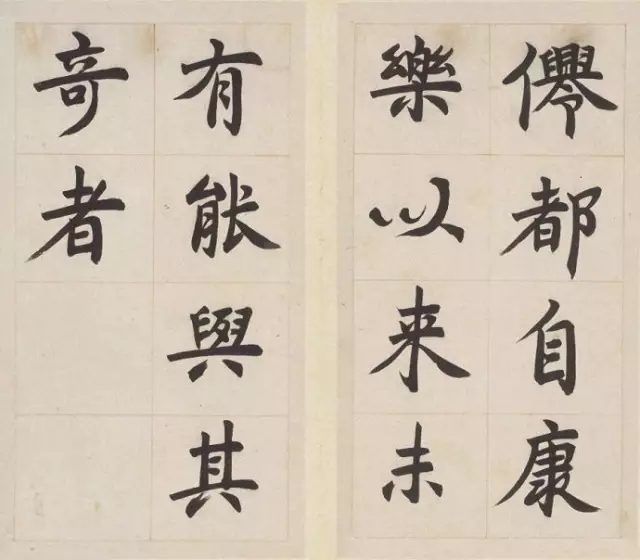 僊都自康
樂以来未
有能與其
竒者